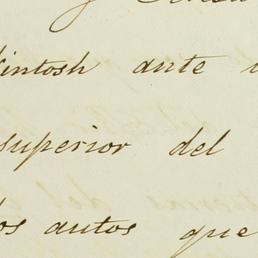 y
intosh ante
superior del
os autos que